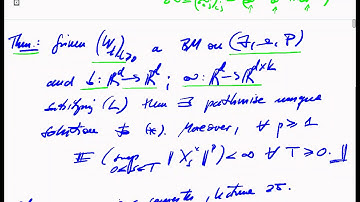 Thm: Given (W_t)_{t≥0} a BM on (F, Ω, P)
and b: ℝ^d → ℝ^d ; σ: ℝ^d → ℝ^{d×k}
satisfying (L) then ∃ pathwise unique
solution to (*). Moreover, ∀ p ≥ 1
𝔼 ( sup_{0≤s≤T} ‖X_s^x‖^p ) < ∞ ∀ T ≥ 0. //
lecture 25.